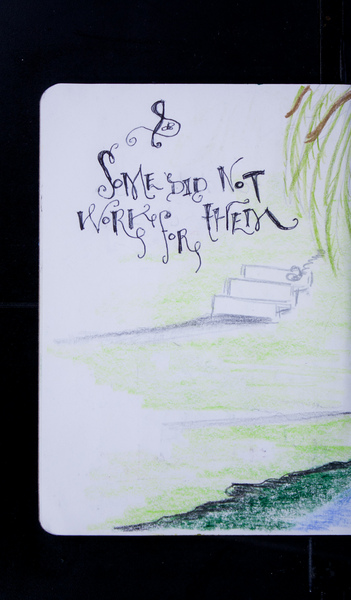 &
SOME DID NOT
WORK FOR THEM